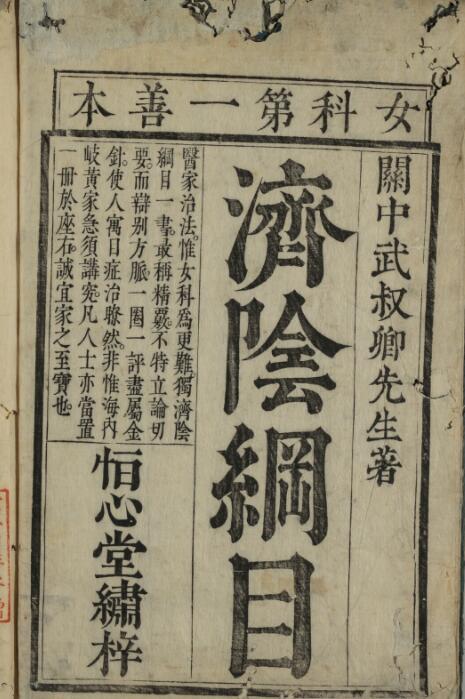 女科第一善本
關中武叔卿先生著
濟陰綱目
醫家治法。惟女科為更難。獨濟陰
綱目一書。最稱精覈。不特立論切
要。而辯别方脈一圈一評盡屬金
針。使人寓目症治瞭然。非惟海內
岐黃家急須講究。凡人士亦當置
一冊於座右。誠宜家之至寶也。
恒心堂繡梓